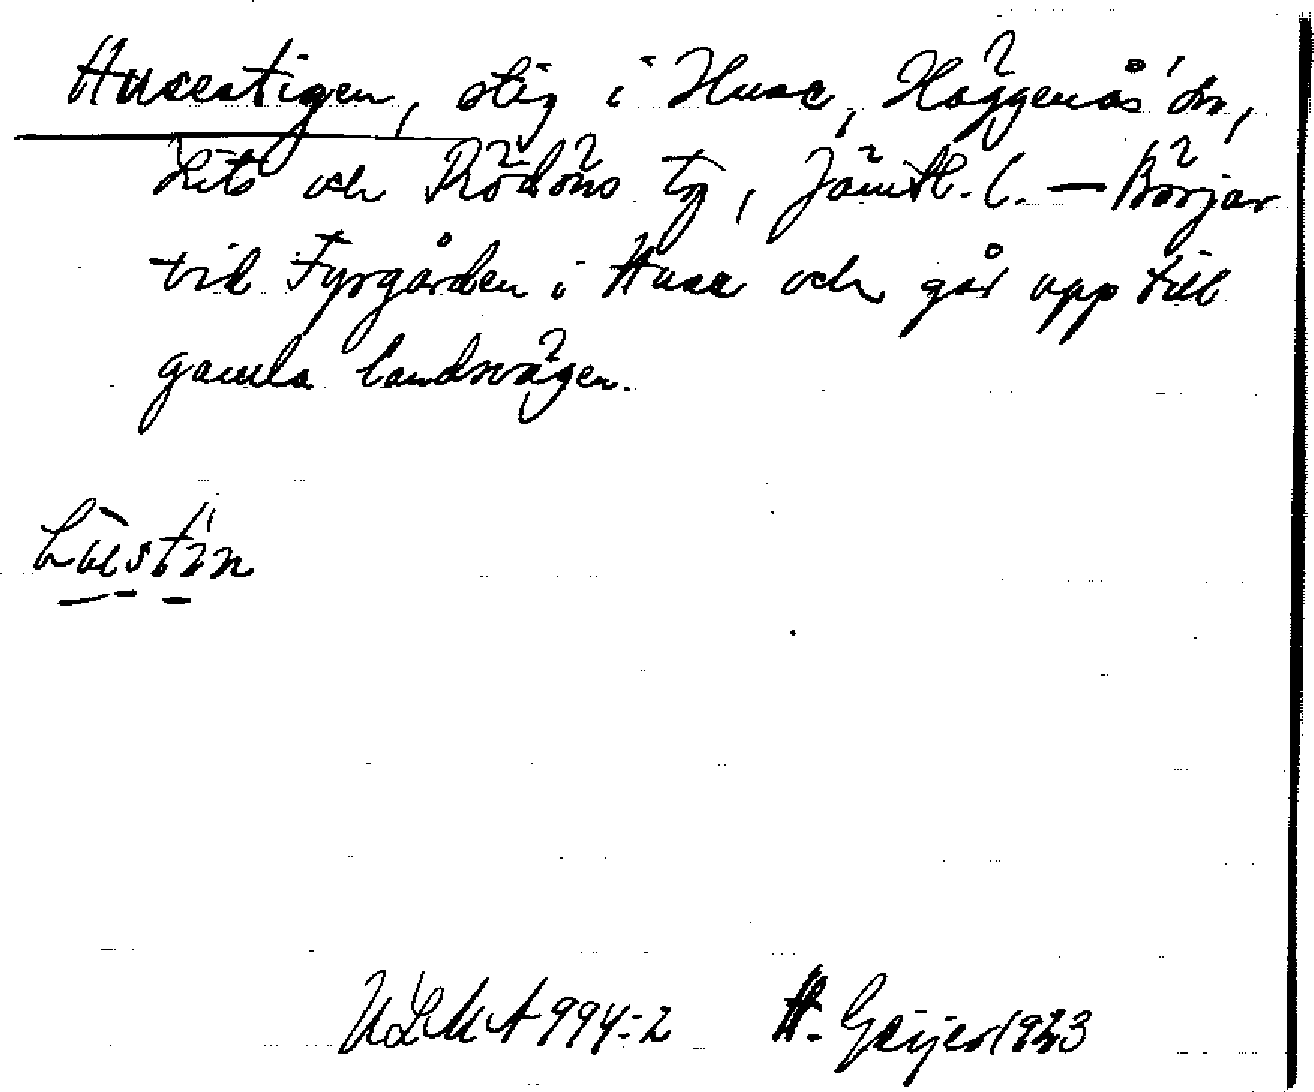 Husestigen, stig i Huse, Häggenås sn,
Lits och Rödöns tg, Jämtl. l. — Börjar
vid Fyrgården i Huse och går upp till
gamla landsvägen.
ULMA 994:2 H. Geijer 1923